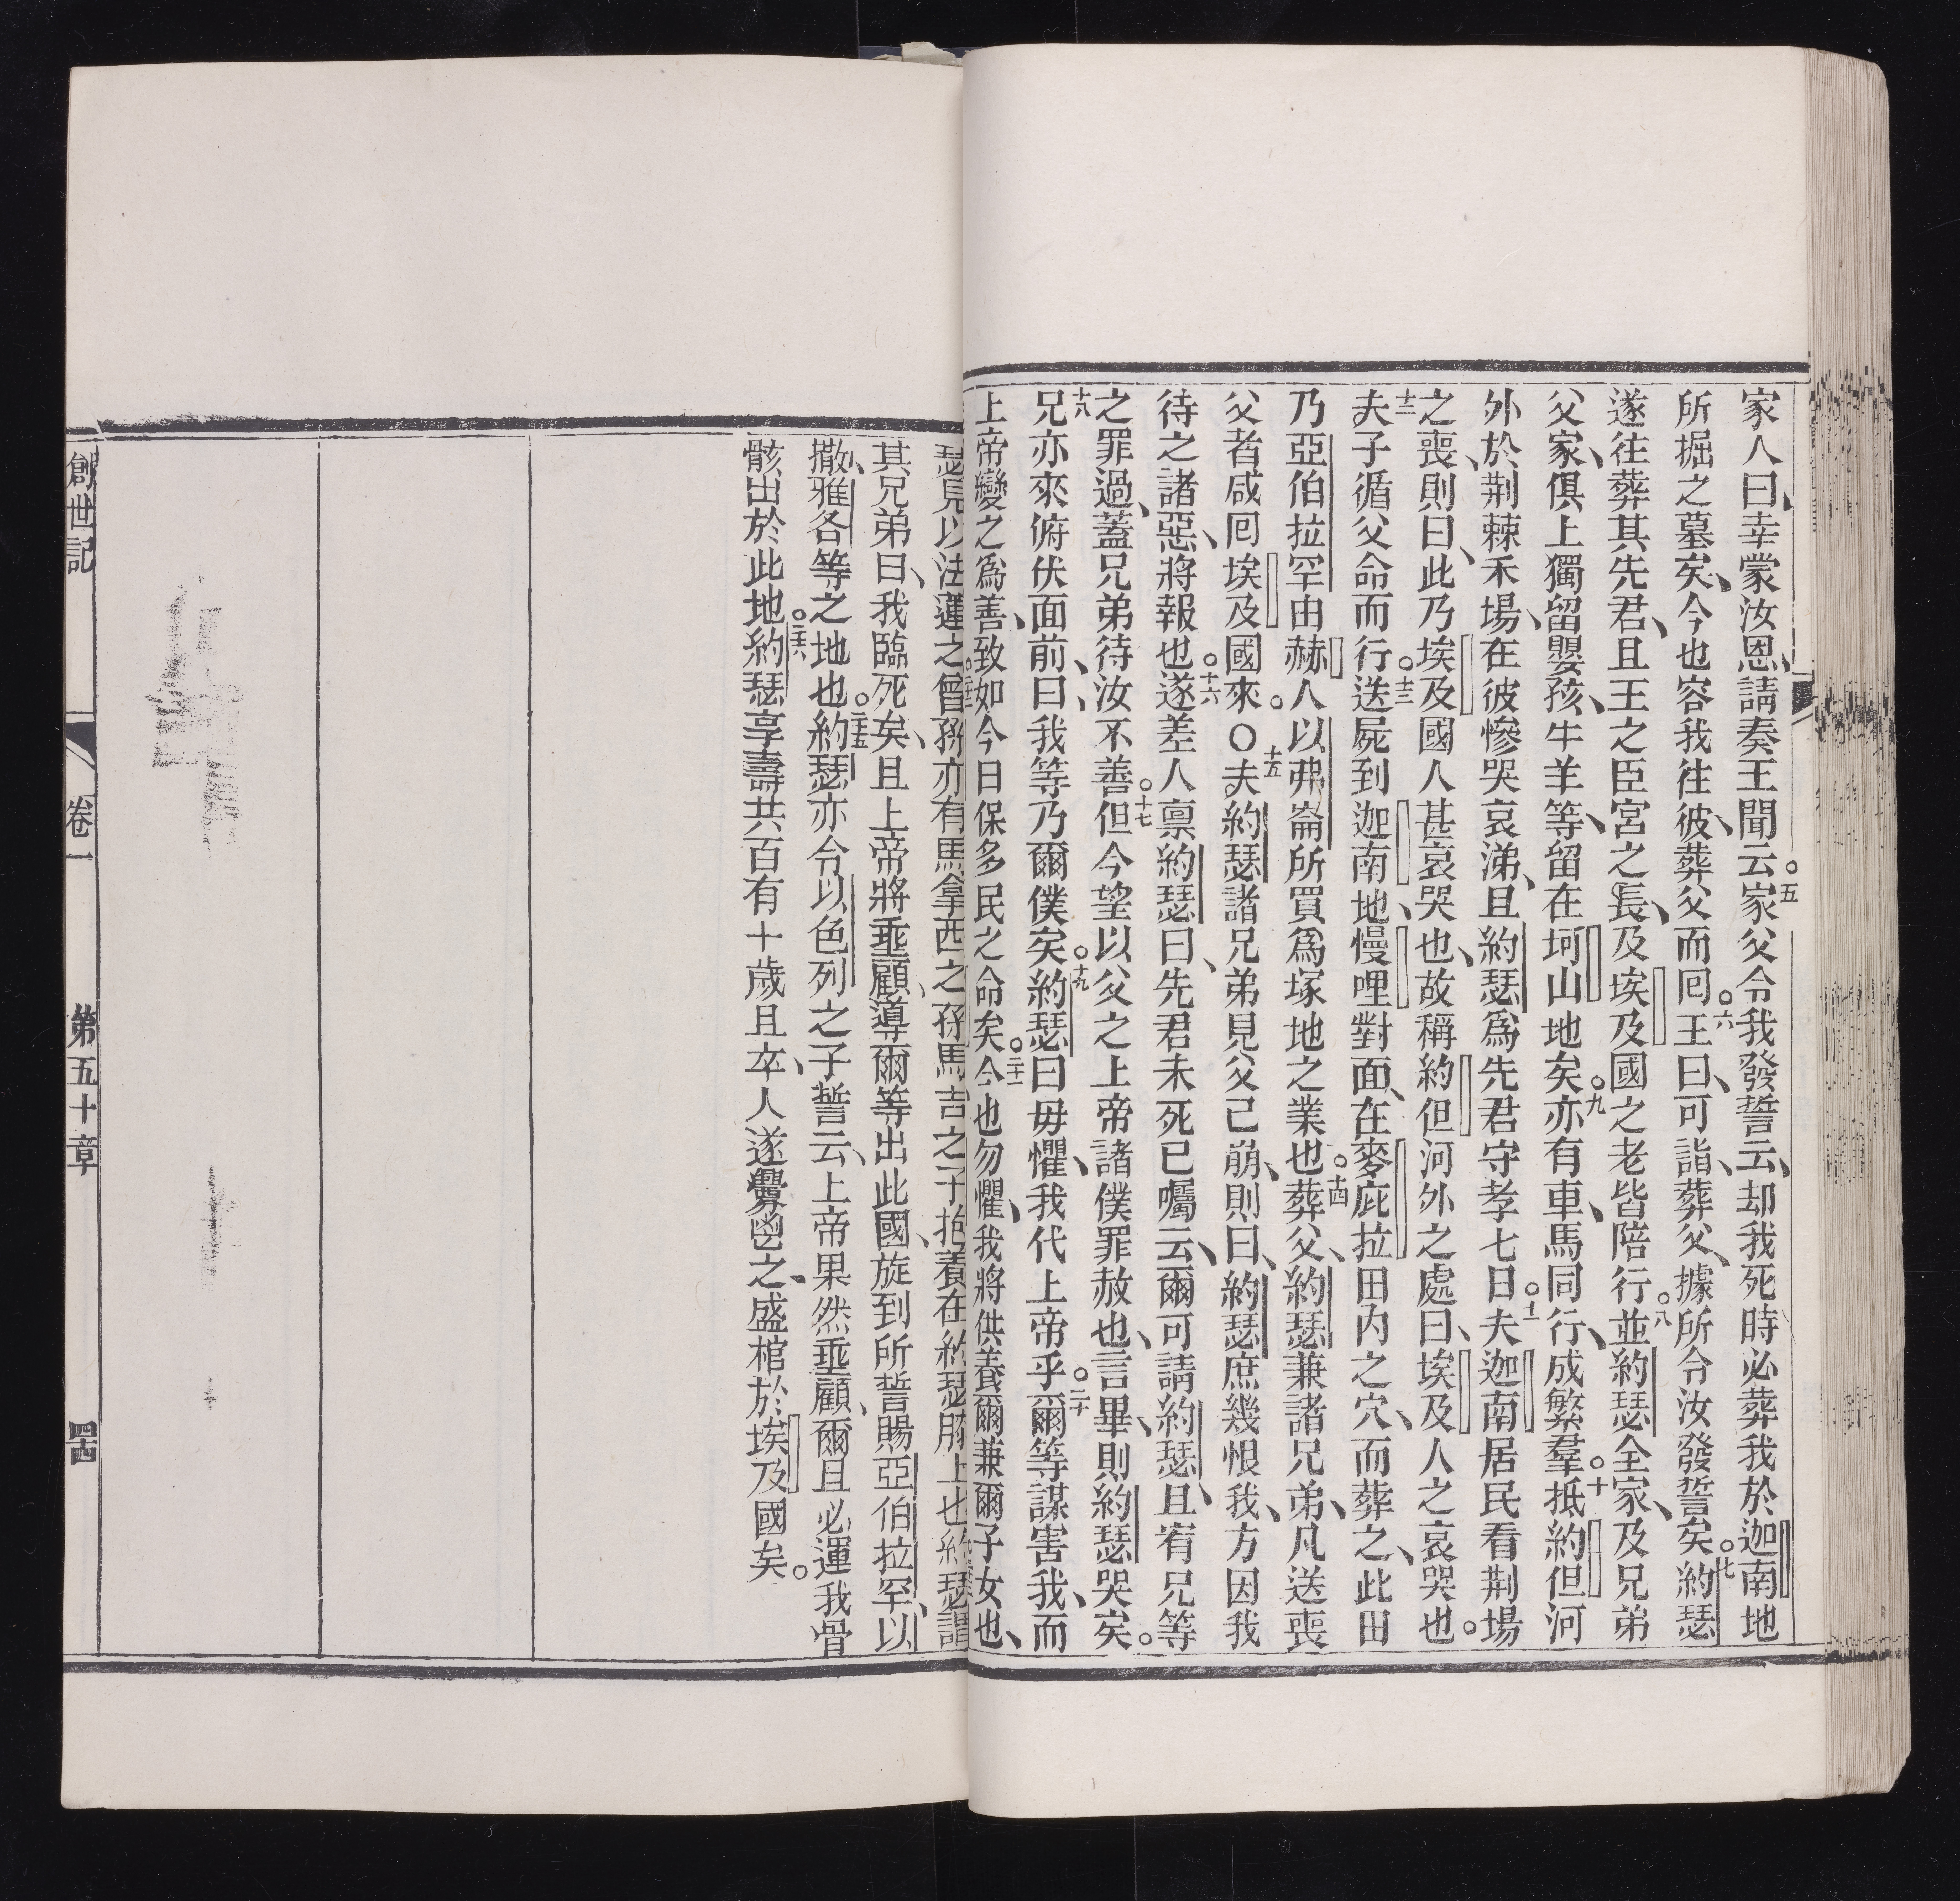 家人曰、幸蒙汝恩、請奏王聞云。五家父令我發誓云、却我死時必葬我於迦南地
所掘之墓矣、今也容我往彼、葬父而囘。六王曰、可詣、葬父、據所令汝發誓矣。七約瑟
遂往葬其先君、且王之臣宮之長、及埃及國之老皆陪行。八並約瑟全家、及兄弟
父家、俱上獨留嬰孩、牛羊等、留在坷山地矣。九亦有車、馬同行、成繁羣。十抵約但河
外於荆棘禾場、在彼慘哭哀涕、且約瑟爲先君守孝七日。十一夫迦南居民看荆場
之喪、則曰、此乃埃及國人甚哀哭也、故稱約但河外之處曰、埃及人之哀哭也。
十二夫子循父命而行。十三送屍到迦南地、慢哩對面、在麥庇拉田内之穴、而葬之、此田
乃亞伯拉罕由赫人以弗崙所買爲塚地之業也。十四葬父、約瑟兼諸兄弟、凡送喪
父者咸囘埃及國來。○十五夫約瑟諸兄弟見父己崩、則曰、約瑟庶幾恨我、方因我
待之諸惡、將報也。十六遂差人稟約瑟曰、先君未死已囑云、爾可請約瑟、且宥兄等
之罪過、蓋兄弟待汝不善。十七但今望以父之上帝諸僕罪赦也、言畢、則約瑟哭矣。
十八兄亦來俯伏面前、曰、我等乃爾僕矣。十九約瑟曰毋懼、我代上帝乎。二十爾等謀害我、而
上帝變之爲善、致如今日保多民之命矣。二十一今也勿懼、我將供養爾兼爾子女也、
瑟見以法蓮之曾孫亦有馬拿西之孫馬吉之子抱養在約瑟膝上也約瑟謂
其兄弟曰、我臨死矣、且上帝將垂顧、導爾等出此國、旋到所誓賜亞伯拉罕、以
撒、雅各等之地也。二十五約瑟亦令以色列之子誓云、上帝果然垂顧、爾且必運我骨
骸出於此地。二十六約瑟享壽共百有十歲且卒、人遂釁鬯之、盛棺於埃及國矣。
創世記 卷一 第五十章 四十四